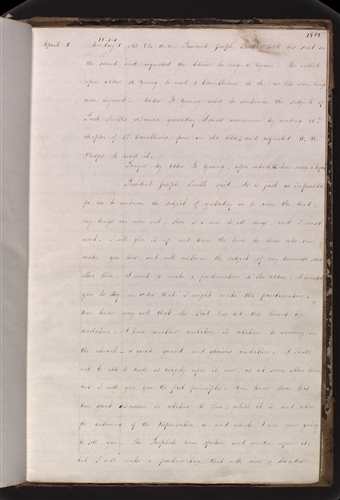 1844
April 8.
Monday at President Joseph Smith took his seat on
the stand, and requested the choir to sing a hymn. He called
upon Elder B. Young to read 1 Corinthians 15 ch. as his own lungs
were injured. Elder B. Young said to continue the subject of
Prest. Smith's discourse yesterday I shall commence by reading 15th
chapter of 1st Corinthians from an old Bible, and requested W. W.
Phelps to read it.
Prayer by Elder B. Young, after which the choir sung a hymn.
President Joseph Smith said, It is just as impossible
for me to continue the subject of yesterday as to raise the dead,
my lungs are worn out, there is a time to all things and I must
wait. I will give it up and leave the time to those who can
make you hear, and will continue the subject of my discourse some
other time. I want to make a proclamation to the elders, I wanted
you to stay, in order that I might make this proclamation.
You know very well that the Lord has led this Church by
revelation. I have another revelation in relation to economy in
the church a great, grand, and glorious revelation. I shall
not be able to dwell as largely upon it now, as at some other time,
but I will give you the first principles. You know there has
been great discussion in relation to Zion, where it is, and where
the gathering of the dispensation is, and which I am now going
to tell you. The Prophets have spoken and written upon it,
but I will make a proclamation that will cover a broader